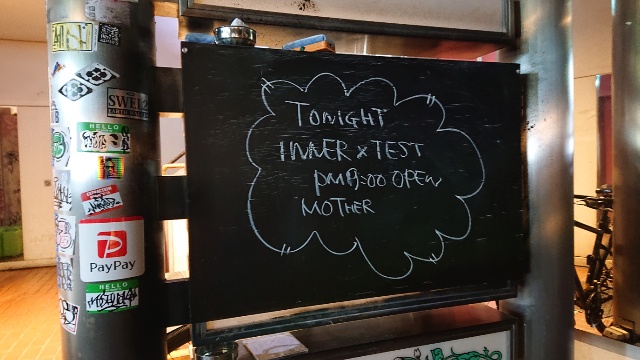 TONIGHT
INNER x TEST
PM19:00 OPEN
MOTHER
SWEI
HELLO
PayPay
HELLO